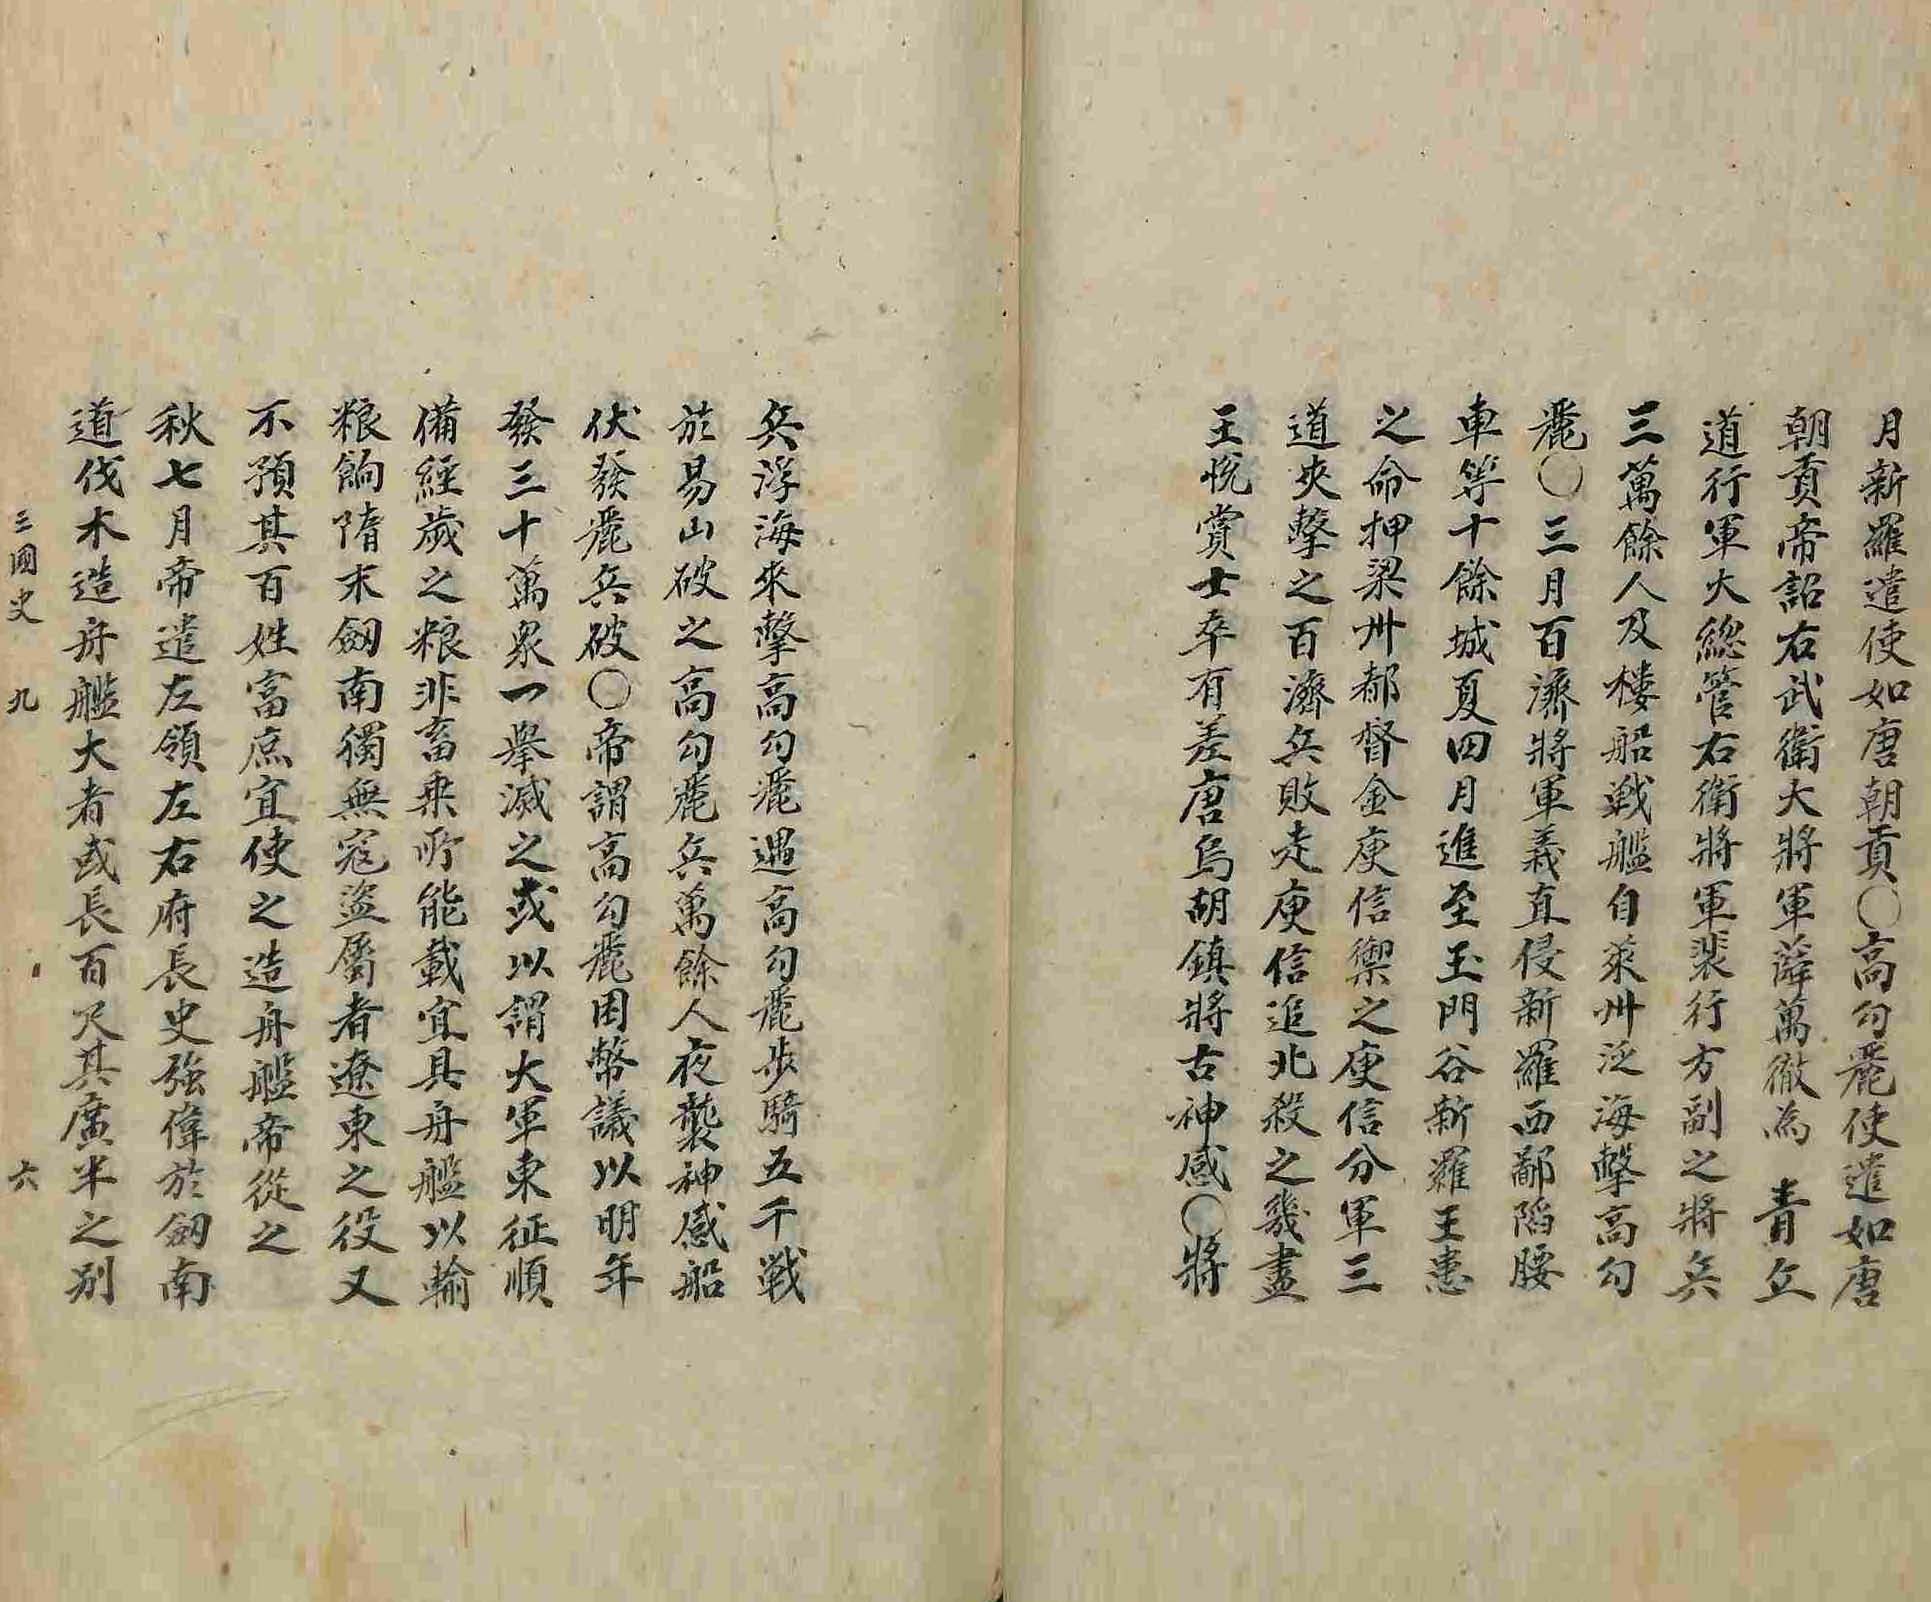 月新羅遣使如唐朝貢○高勾麗使遣如唐
朝貢帝詔右武衛大將軍薛萬徹為 青丘
道行軍大總管右衛將軍裴行方副之將兵
三萬餘人及樓船戦艦自萊州泛海擊高勾
麗○三月百濟將軍義直侵新羅西鄙陷腰
車等十餘城夏四月進至玉門谷新羅王患
之命押梁州都督金庾信禦之庾信分軍三
道夾擊之百濟兵敗走庾信追北殺之幾盡
王悅賞士卒有差唐烏胡鎮將古神感○將
兵浮海來擊高勾麗遇高勾麗步騎五千戦
於易山破之高勾麗兵萬餘人夜襲神感船
伏發麗兵破○帝謂高勾麗困幣議以明年
發三十萬衆一舉滅之或以謂大軍東征順
備經歲之粮非畜乗所能載宜具舟艦以輸
粮餉隋末劒南獨無寇盗屬者遼東之役又
不預其百姓富庶宜使之造舟艦帝從之
秋七月帝遣左領左右府長史強偉於劒南
道伐木造舟艦大者或長百尺其廣半之别
三國史 九 六